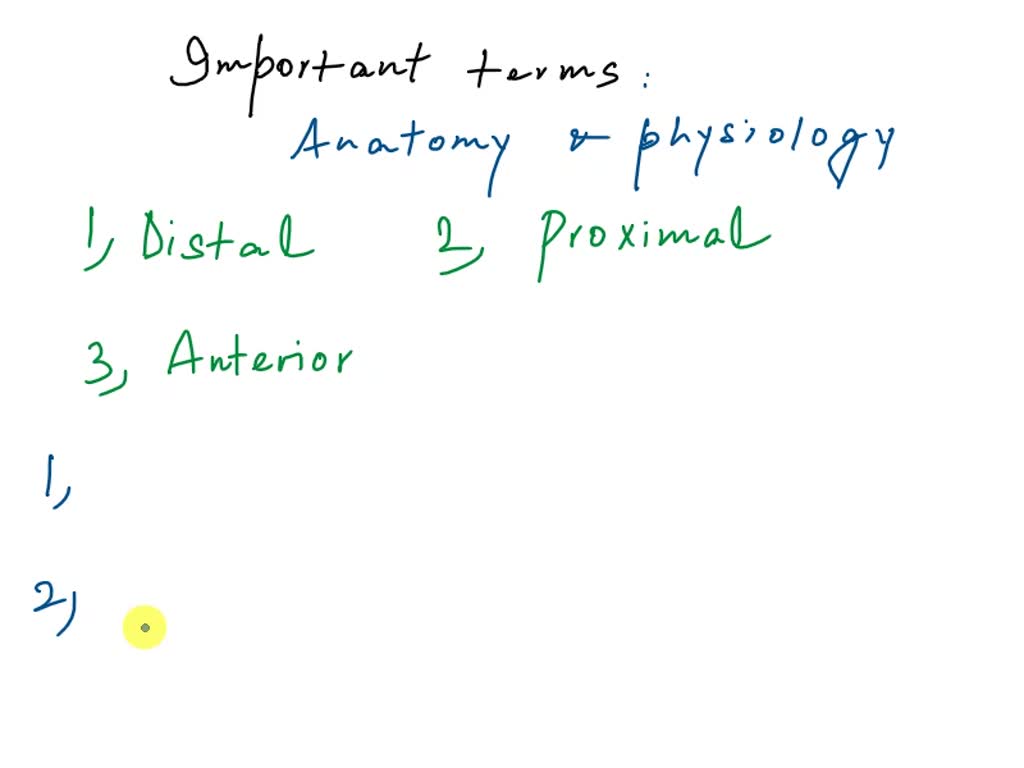 Important terms:
Anatomy & physiology
1, Distal 2, Proximal
3, Anterior
1,
2,